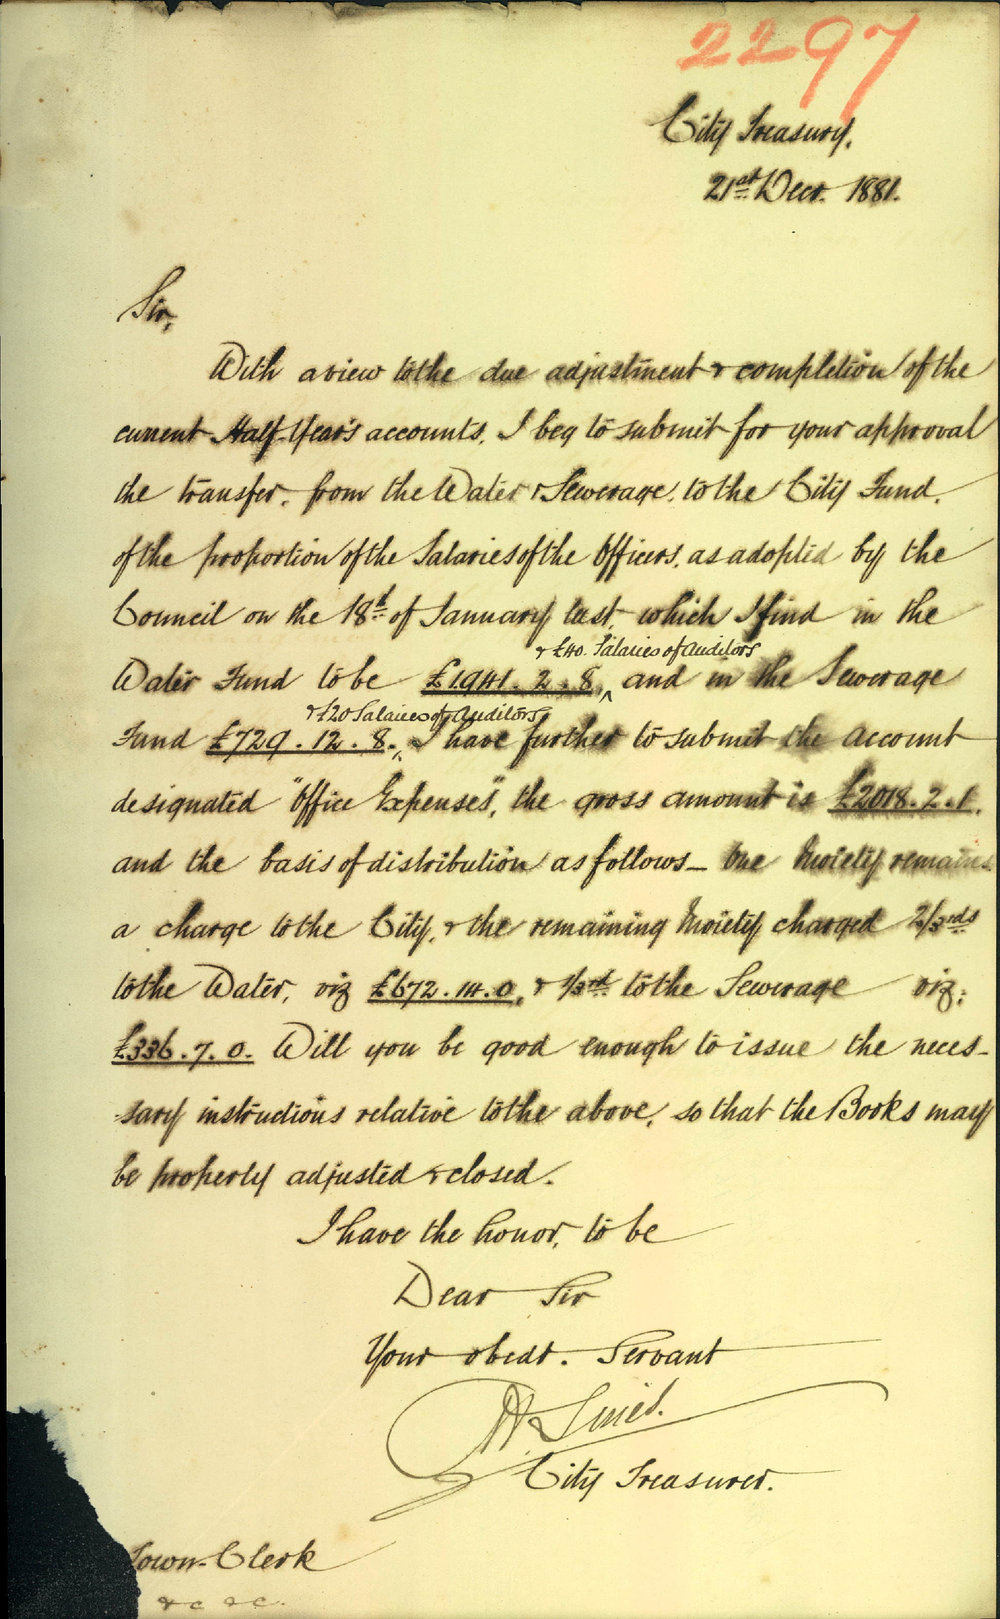 2297
City Treasury,
21st Decr. 1881.
Sir,
With a view to the due adjustment & completion of the
current Half-Year's accounts, I beg to submit for your approval
the transfer, from the Water & Sewerage, to the City Fund,
of the proportion of the Salaries of the Officers, as adopted by the
Council on the 18th of January last, which I find in the
& £40. Salaries of Auditors
Water Fund to be £1941. 2. 8, ^ and in the Sewerage
& £20 Salaries of Auditors
Fund £729. 12. 8. ^ I have further to submit the Account
designated "Office Expenses", the gross amount is £2018. 2. 1.
and the basis of distribution as follows - One Moiety remains
a charge to the City, & the remaining Moiety charged 2/3rds
to the Water, viz £672. 14. 0, & 1/3rd to the Sewerage viz:
£336. 7. 0. Will you be good enough to issue the neces-
sary instructions relative to the above, so that the Books may
be properly adjusted & closed.
I have the honor, to be
Dear Sir
Your obedt. Servant
City Treasurer.
Town-Clerk
&c &c.